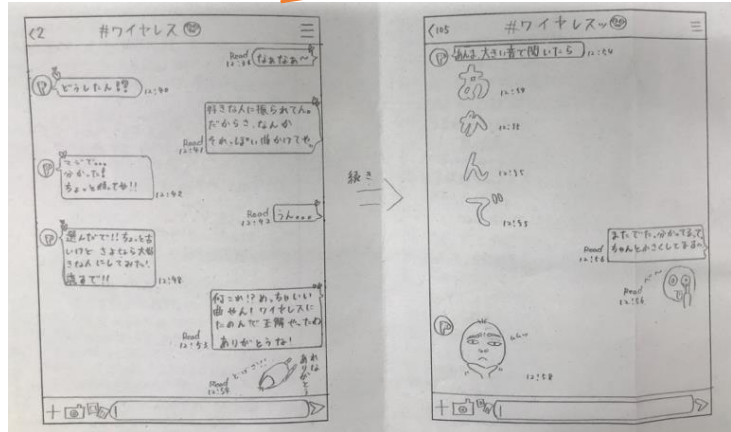 <2 #ワイヤレス
Read
12:38
なぁなぁ〜
どうしたん？？
12:40
好きな人に振られてん。
だからさ、なんか
それっぽい曲かけてや。
Read
12:41
分かった！
ちょっと待ってや!!
12:42
うん...
Read
12:42
選んだで!!ちょっと古
いけど さよなら大好
きな人にしてみた！
流すで!!
12:48
何これ!?めっちゃいい
曲やん！ワイヤレスに
たのんで正解やったわ
ありがとうな！
Read
12:53
ありがとう
Read
12:54
続き
<105 #ワイヤレスッ
あんま大きい音で聞いたら
12:54
あ
12:54
か
12:55
ん
12:55
で
12:55
またでた。分かってるって
ちゃんと小さくしてるよ〜
Read
12:56
Read
12:56
12:58